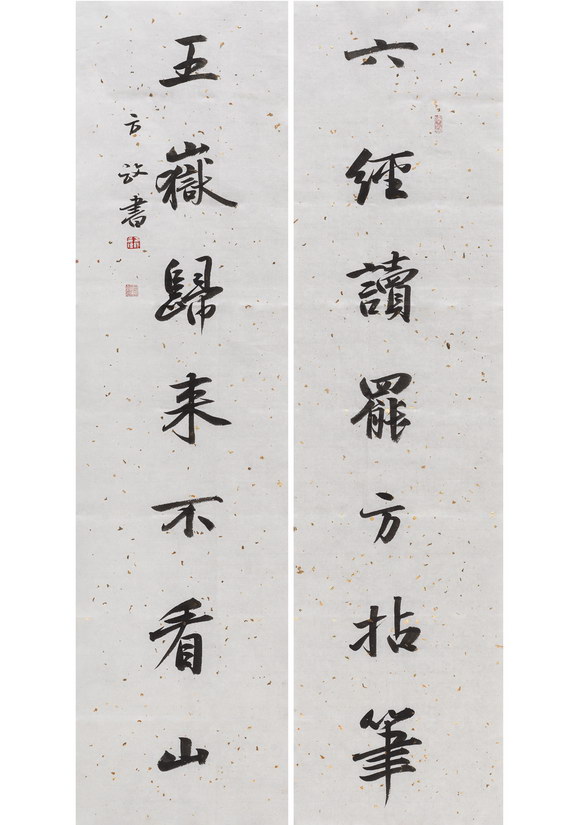 六經讀罷方拈筆
五嶽歸来不看山
方政書